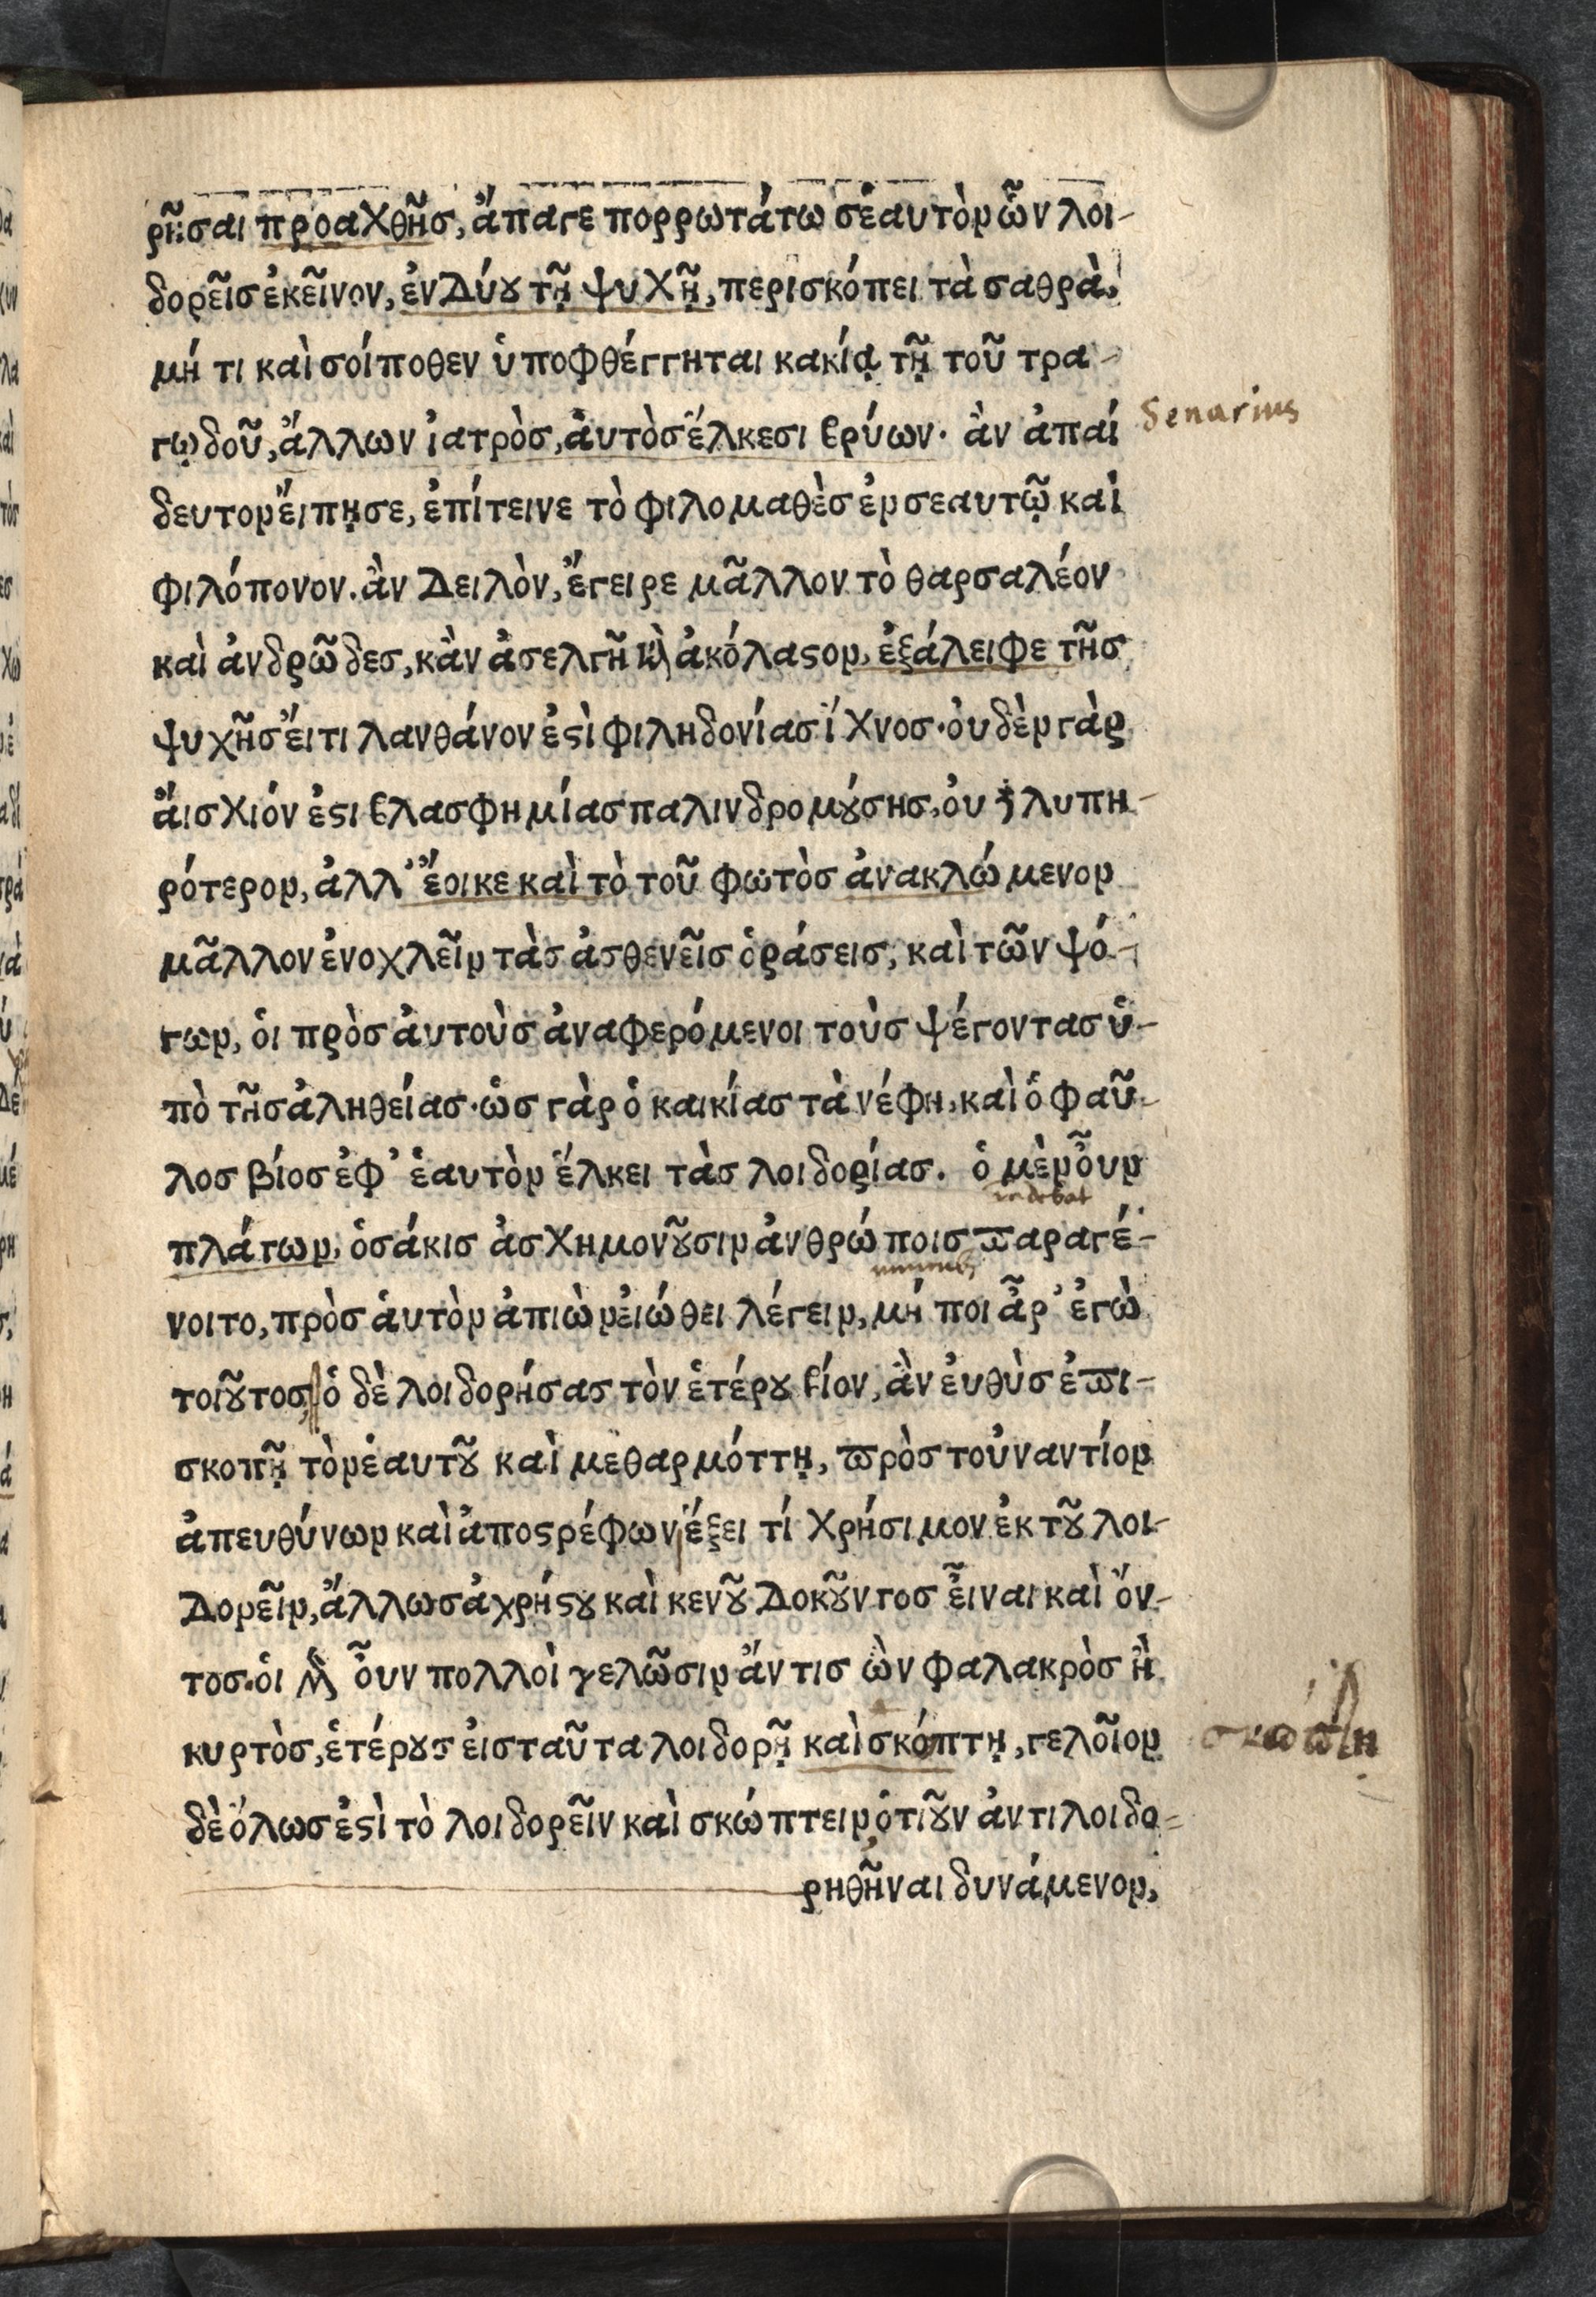 ρῆσαι προαχθῇσ, ἄπαγε πορρωτάτω σεαυτὸν ὧν λοι-
δορεῖσ ἐκεῖνον, ἐνδύου τῇ ψυχῇ, περισκόπει τὰ σαθρὰ,
μή τι καὶ σοί ποθεν ὑποφθέγγηται κακίᾳ τῇ τοῦ τρα-
γῳδοῦ, ἄλλων ἰατρὸσ, ἀυτὸσ ἕλκεσι βρύων· ἂν ἀπαί
δευτον ἔιπῃσε, ἐπίτεινε τὸ φιλομαθὲσ ἐν σεαυτῷ καὶ
φιλόπονον. ἂν δειλὸν, ἔγειρε μᾶλλον τὸ θαρσαλέον
καὶ ἀνδρῶδεσ, κἂν ἀσελγῆ καὶ ἀκόλαςον, ἐξάλειφε τῆσ
ψυχῆσ ἔιτι λανθάνον ἐςὶ φιληδονίασ ἴχνοσ· ὀυδὲν γὰρ
ἄισχιόν ἐςι βλασφημίασ παλινδρομούσησ, ὀυδὲ λυπη-
ρότερον, ἀλλ' ἔοικε καὶ τὸ τοῦ φωτὸσ ἀνακλώμενον
μᾶλλον ἐνοχλεῖν τὰσ ἀσθενεῖσ ὁράσεισ, καὶ τῶν ψό-
γων, ὁι πρὸσ ἀυτοὺσ ἀναφερόμενοι τοὺσ ψέγοντασ ὑ-
πὸ τῆσ ἀληθείασ· ὡσ γὰρ ὁ καικίασ τὰ νέφη, καὶ ὁ φαῦ-
λοσ βίοσ ἐφ' ἑαυτὸν ἕλκει τὰσ λοιδορίασ. ὁ μὲν ὀῦν
πλάτων, ὁσάκισ ἀσχημονοῦσιν ἀνθρώποισ παραγέ-
νοιτο, πρὸσ ἁυτὸν ἀπιὼν ἐιώθει λέγειν, μή ποι ἆρ' ἐγὼ
τοιοῦτοσ, ὁ δὲ λοιδορήσασ τὸν ἑτέρου βίον, ἂν ἐυθὺσ ἐπι-
σκοπῇ τὸν ἑαυτοῦ καὶ μεθαρμόττῃ, πρὸσ τοὐναντίον
ἀπευθύνων καὶ ἀποςρέφων ἕξει τί χρήσιμον ἐκ τοῦ λοι-
δορεῖν, ἄλλωσ ἀχρήςου καὶ κενοῦ δοκοῦντοσ ἐῖναι καὶ ὄν-
τοσ. ὁι μὲν ὀῦν πολλοὶ γελῶσιν ἄν τισ ὢν φαλακρὸσ ἢ
κυρτὸσ, ἑτέρουσ ἐισ ταῦτα λοιδορῇ καὶ σκόπτῃ, γελοῖον
δὲ ὅλωσ ἐςὶ τὸ λοιδορεῖν καὶ σκώπτειν ὁτιοῦν ἀντιλοιδο-
ρηθῆναι δυνάμενον,
Senarius
σκώπτη